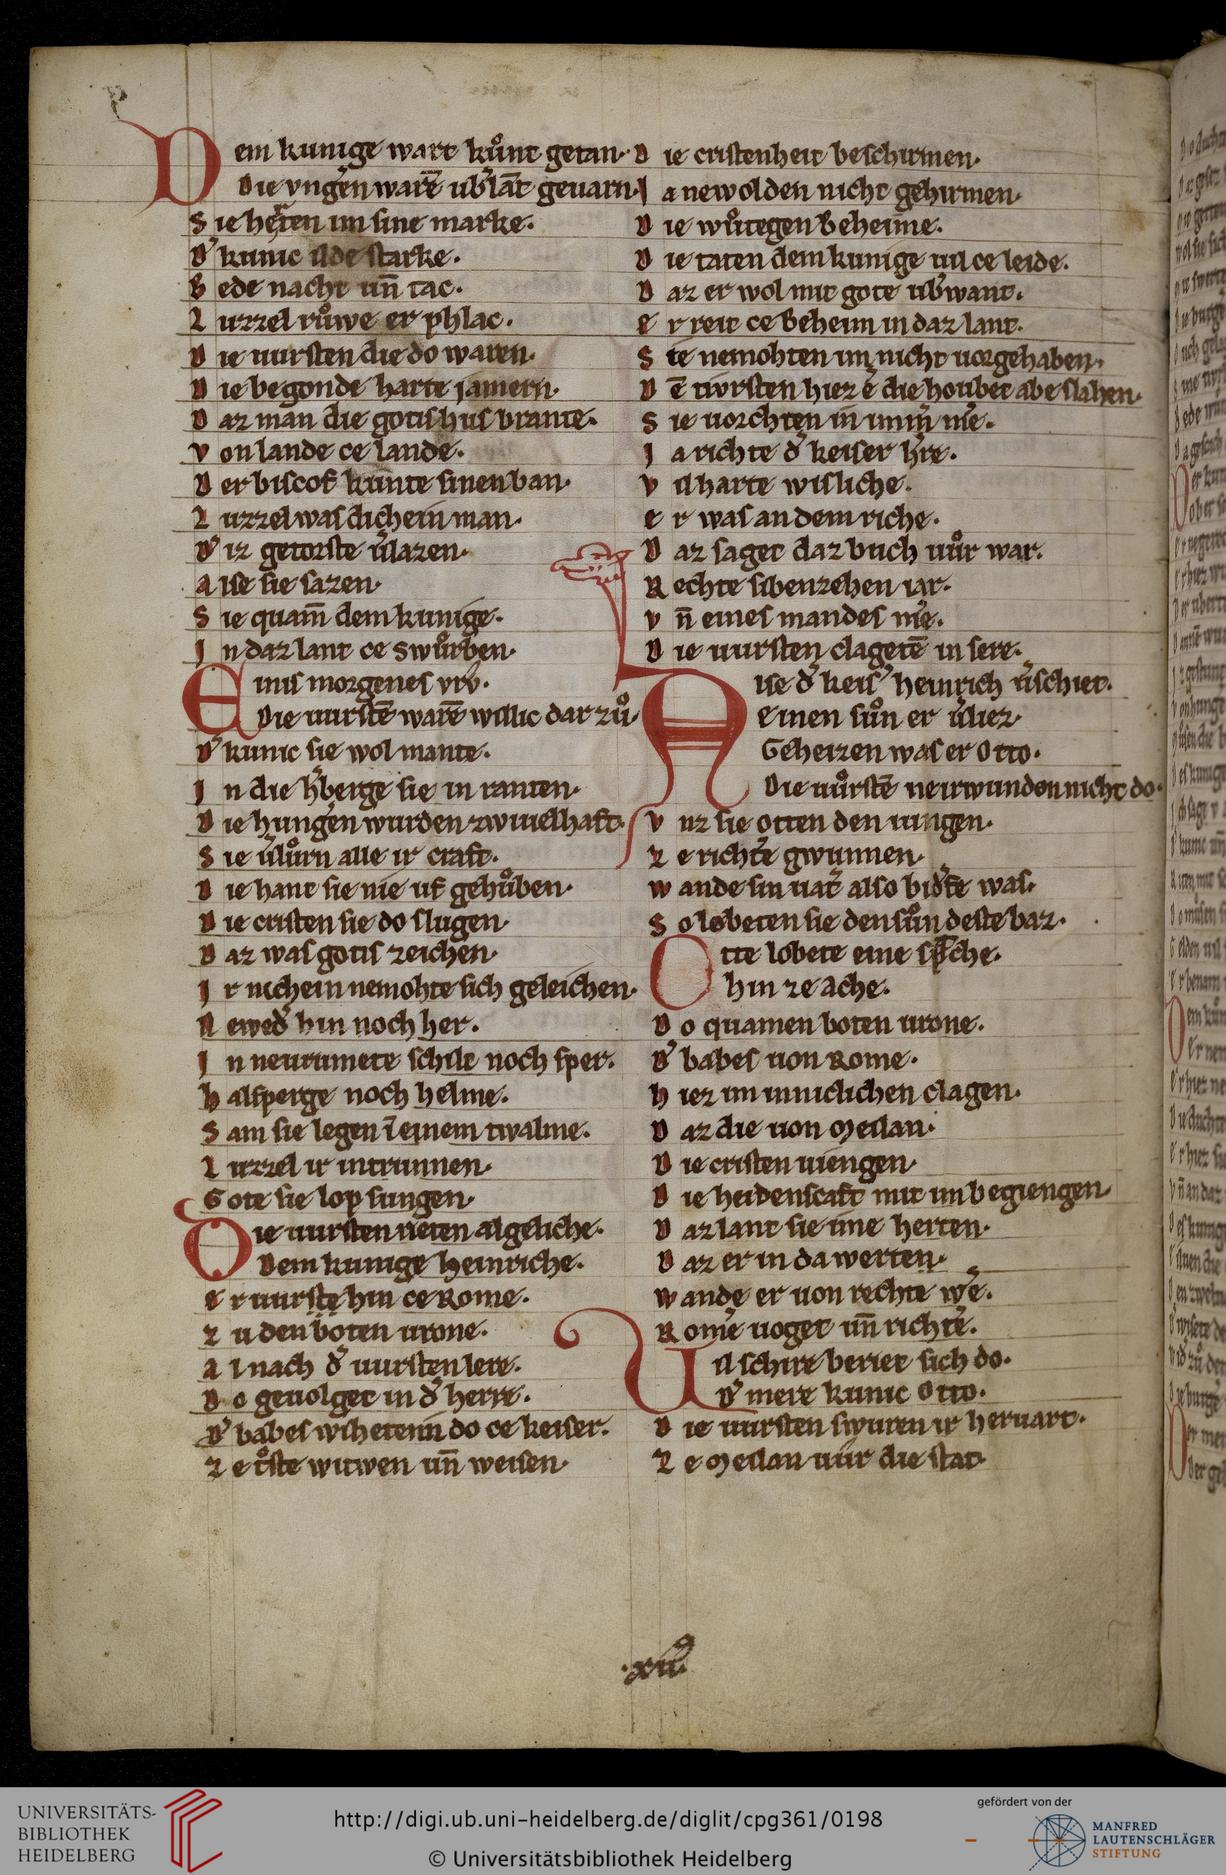 Dem kunige wart kuͦnt getan·
Die vngˀen warē vbˀlāt geuarn·
Sie heten im sine marke·
Dˀ kunic ilde starke·
Bede nacht un̄ tac·
Luzzel ruͦwe er phlac·
Die uursten die do waren·
Die begonde harte jamern·
Daz man die gotishus brante·
Von lande ce lande·
Der biscof kunte sinen ban·
Luzzel was dichein man·
Dˀ iz getorste vˀlazen·
Alse sie sazen·
Sie quam̄ dem kunige·
In daz lant ce swuͦrben·
Einis morgenes vrv·
Die uurstē warē willic dar zuͦ·
Dˀ kunic sie wol mante·
In die hˀberge sie in ranten·
Die hungˀen wurden zwiuelhaft·
Sie vˀluͦrn alle ir craft·
Die hant sie nie uf gehuͦben·
Die cristen sie do slugen·
Daz was gotis zeichen·
Ir nichein nemohte sich geleichen·
Newedˀ hin noch her·
In neurumete schilt noch sper·
Halsperge noch helme·
Sam sie legen ī einem twalme·
Luzzel ir intrunnen·
Gote sie lop sungen·
Die uursten rieten algeliche·
Dem kunige Heinriche·
Er uurste hin ce Rome·
Zu den boten urone·
Al nach dˀ uursten lere·
Do geuolget in dˀ herre·
Dˀ babes wihete in do ce keiser·
Ze troͦste witwen un̄ weisen·
Die cristenheit beschirmen·
Ja newolden nicht gehirmen·
Die wuͦtegen Beheime·
Die taten dem kunige uil ce leide·
Daz er wol mit gote ubˀwant·
Er reit ce Beheim in daz lant·
Sie nemohten im nicht uorgehaben·
Dē tiursten hiez ē die houbet abe slahen·
Sie uorchten in immˀ mē·
Ja richte dˀ keiser hˀre·
Vil harte wisliche·
Er was an dem riche·
Daz saget daz buch uuͦr war·
Rechte sibenzehen iar·
Vn̄ eines mandes mˀe·
Die uursten clagetē in sere·
Alse dˀ keisˀ Heinrich vˀschiet·
Einen suͦn er vˀliez·
Geheizen was er Otto·
Die uuͦrstē neirwunden nicht do·
Vnz sie otten den iungen·
Ze richtˀe gwunnen·
Wande sin uatˀ also bidˀfe was·
So lobeten sie den suͦn deste baz·
Otte lobete eine sprache·
hin ze Ache·
Do quamen boten urone·
Dˀ babes uon Rome·
Hiez im inniclichen clagen·
Daz die uon Meilan·
Die cristen uiengen·
Die heidenscaft mit im begiengen·
Daz lant sie ime herten·
Daz er in da werten·
Wande er uon rechte wˀe·
Romˀe uoget un̄ richtˀe·
Uil schire beriet sich do·
Dˀ mere kunic Otto·
Die uursten swuren ir heruart·
Ze Meilan uur die stat·
·xii·
UNIVERSITÄTS-
BIBLIOTHEK
HEIDELBERG
http://digi.ub.uni-heidelberg.de/diglit/cpg361/0198
© Universitätsbibliothek Heidelberg
gefördert von der
MANFRED
LAUTENSCHLÄGER
STIFTUNG